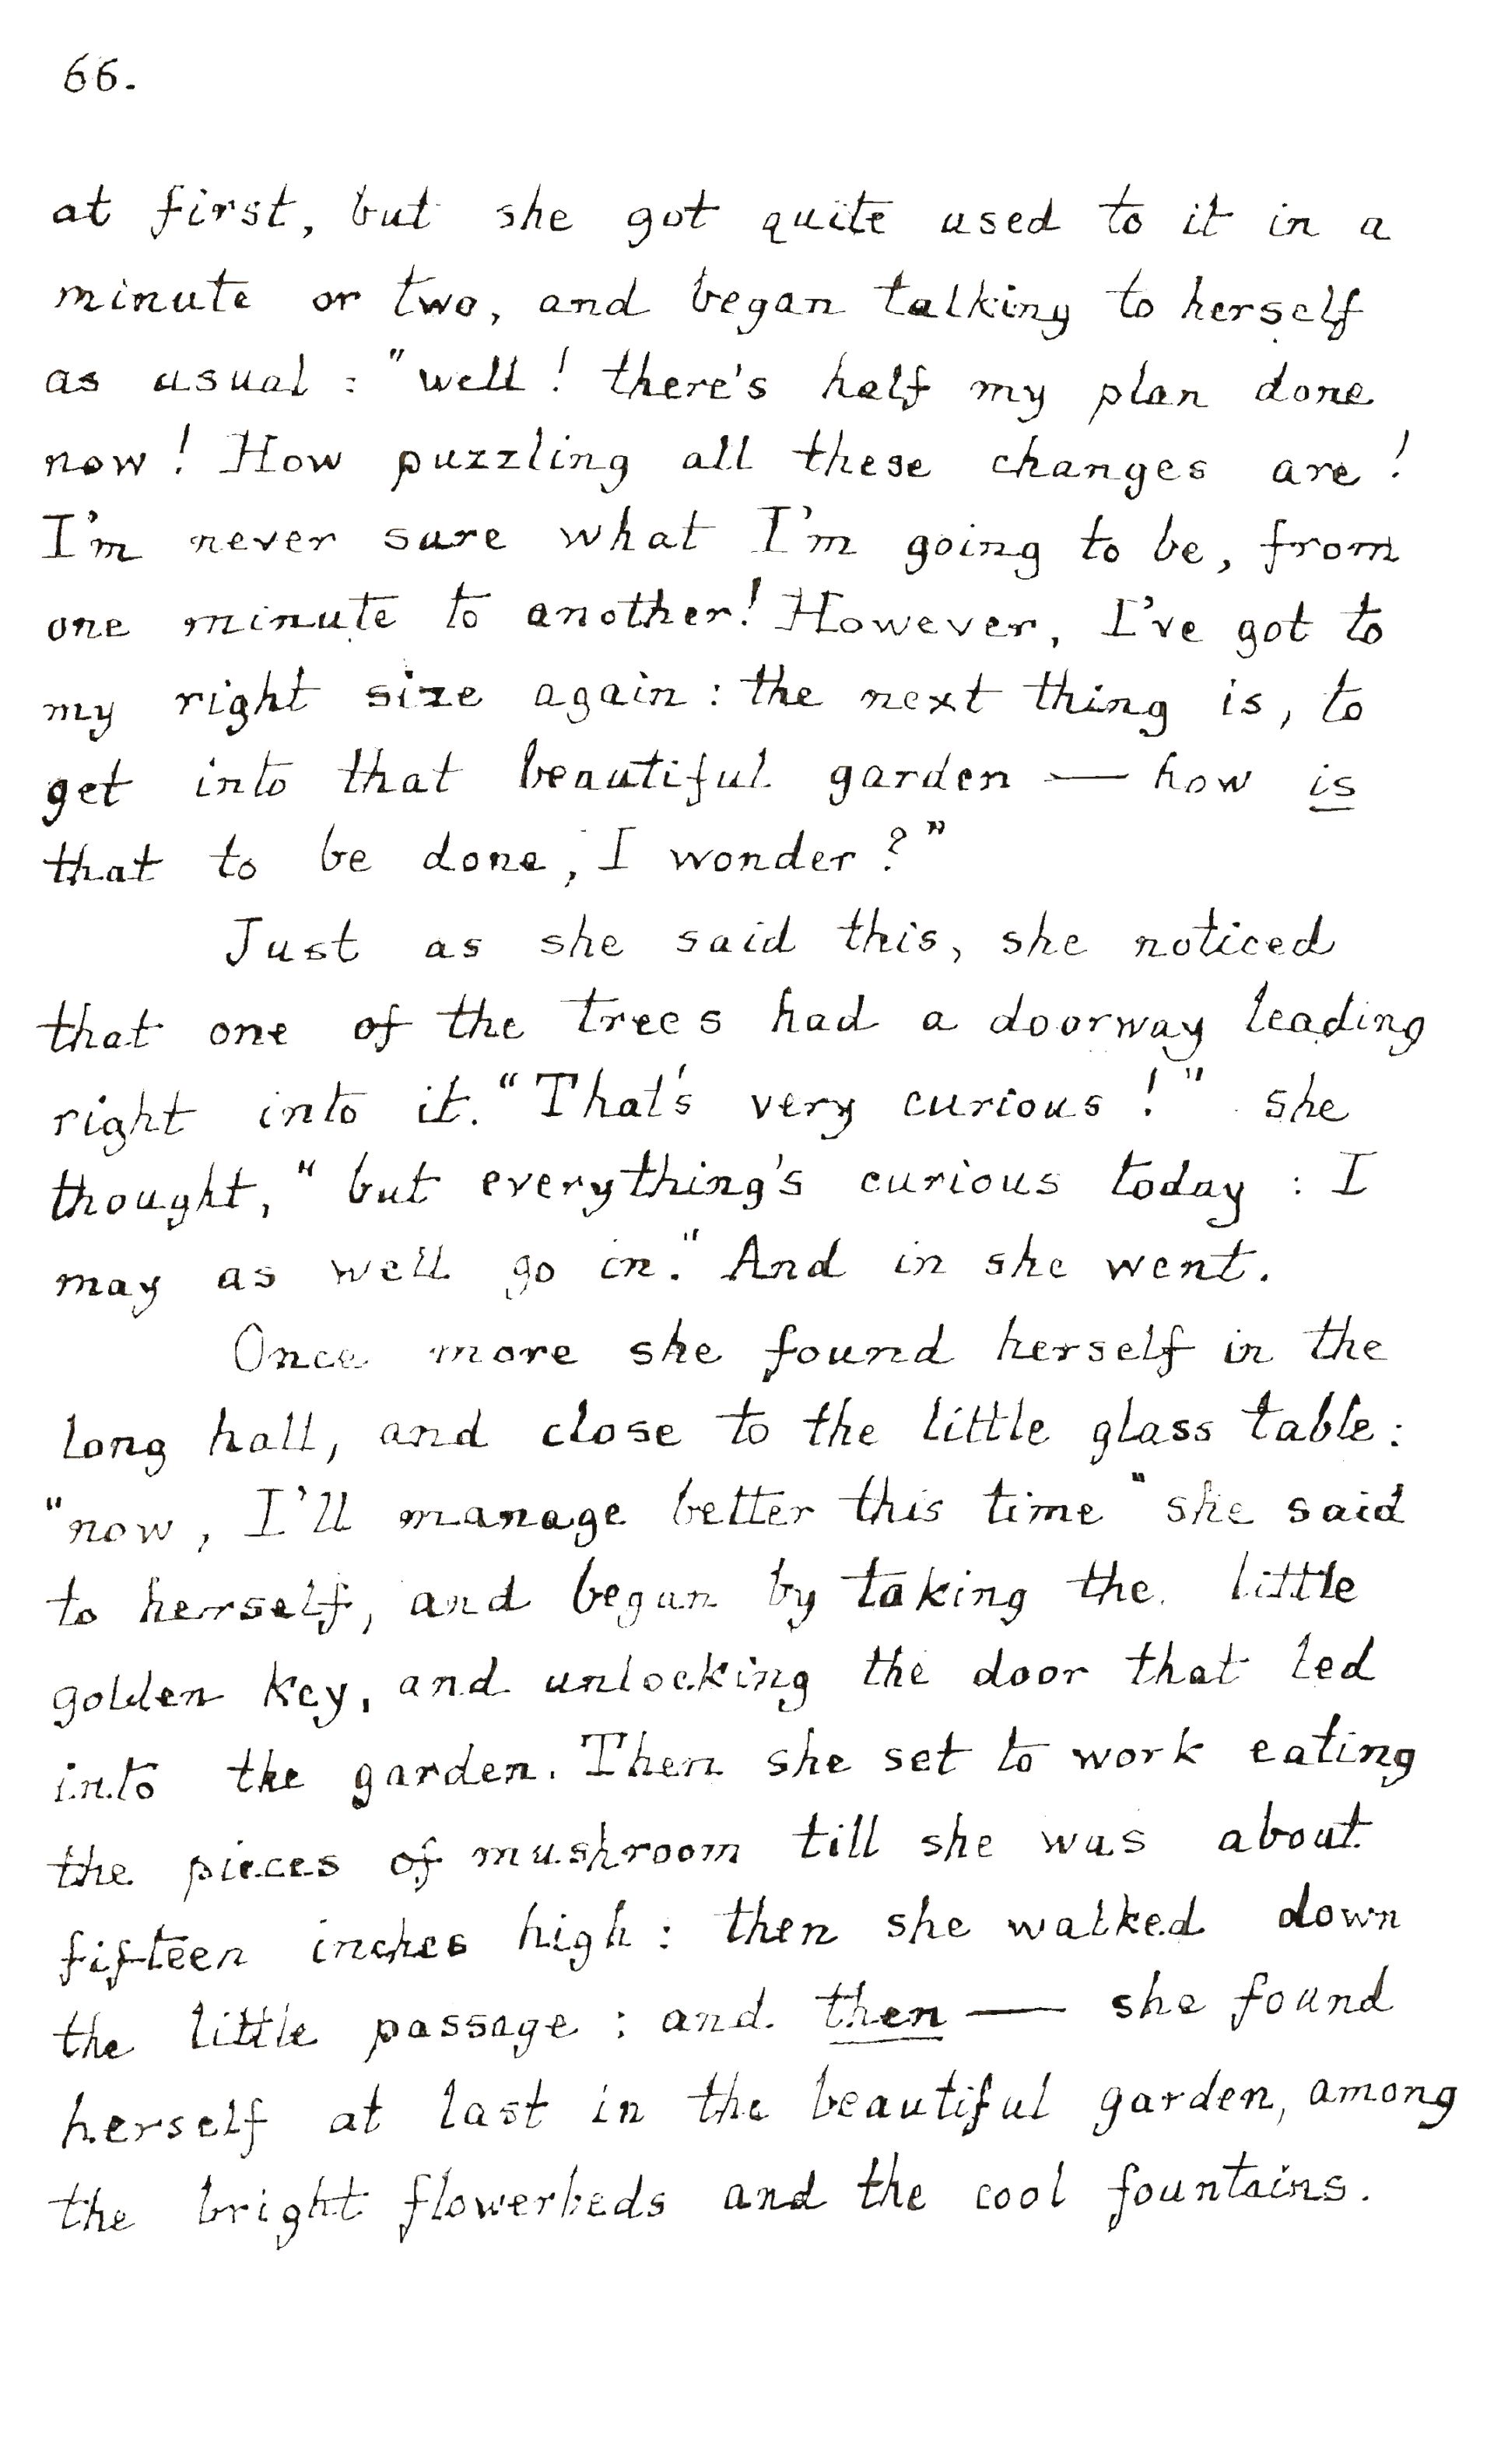 66.
at first, but she got quite used to it in a
minute or two, and began talking to herself
as usual : "well ! there's half my plan done
now ! How puzzling all these changes are !
I'm never sure what I'm going to be, from
one minute to another! However, I've got to
my right size again : the next thing is, to
get into that beautiful garden — how is
that to be done, I wonder ?"
Just as she said this, she noticed
that one of the trees had a doorway leading
right into it. "That's very curious !" she
thought, "but everything's curious today : I
may as well go in." And in she went.
Once more she found herself in the
long hall, and close to the little glass table :
"now, I'll manage better this time" she said
to herself, and began by taking the little
golden key, and unlocking the door that led
into the garden. Then she set to work eating
the pieces of mushroom till she was about
fifteen inches high : then she walked down
the little passage : and then — she found
herself at last in the beautiful garden, among
the bright flowerbeds and the cool fountains.